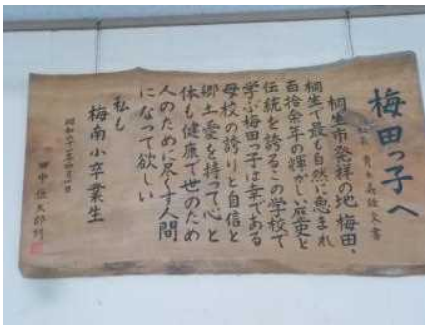 梅田っ子へ
桐生市発祥の地梅田、
桐生で最も自然に恵まれ
百拾余年の輝かしい歴史と
伝統を誇るこの学校で
学ぶ梅田っ子は幸である
母校の誇りと自信と
郷土愛を持って心と
体も健康で世のため
人のために尽くす人間
になって欲しい
私も
梅南小卒業生